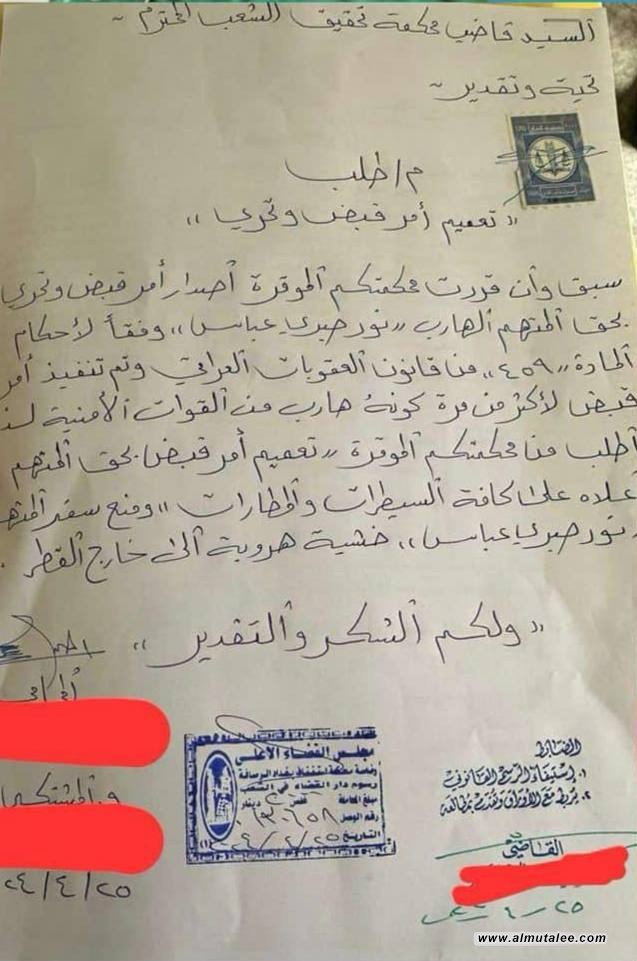 السيد قاضي محكمة تحقيق الشعب المحترم ~
تحية وتقدير ~
م / طلب
« تعميم أمر قبض وتحري »
سبق وأن قررت محكمتكم الموقرة أصدار أمر قبض وتحري
بحق المتهم الهارب « نور صبري عباس » وفقاً لأحكام
المادة « ٤٥٩ » من قانون العقوبات العراقي وتم تنفيذ أمر
قبض لأكثر من مرة كونه هارب من القوات الأمنية لذ
أطلب من محكمتكم الموقرة « تعميم أمر قبض بحق المتهم
علاه على كافة السيطرات والمطارات » ومنع سفر المته
« نور صبري عباس » خشية هروبة ألى خارج القطر .
« ولكم ألشكر وألتقدير »
المحامي
والمشتكي
٢٤/٤/٢٥
مجلس القضاء الأعلى
رئاسة محكمة استئناف بغداد الرصافة
رسوم دار القضاء في الشعب
مبلغ المعاملة
دينار
رقم الوصل
التاريخ
١. إستيفاء الرسم القانوني
٢. يربط مع الأوراق وتقدم بمطالعة
القاضي
www.almutalee.com